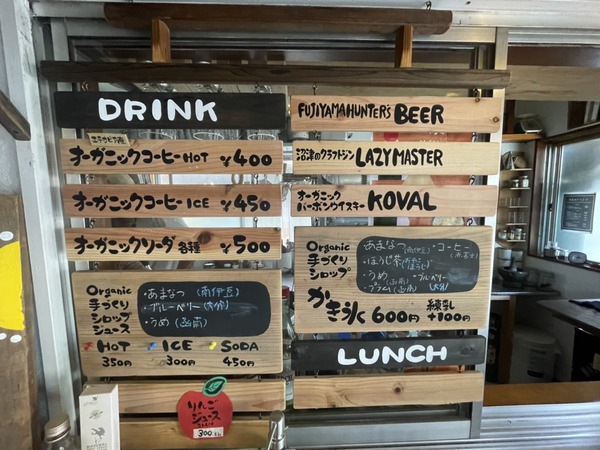 DRINK
オーガニックコーヒーHOT ¥400
オーガニックコーヒーICE ¥450
オーガニックソーダ各種 ¥500
Organic
手づくり
シロップ
ジュース
・あまなつ(南伊豆)
・ブルーベリー(大分)
・うめ(函南)
HOT ICE SODA
350円 300円 450円
りんご
ジュース
300
FUJIYAMAHUNTER'S BEER
沼津のクラフトジン LAZY MASTER
オーガニック
バーボンウイスキー KOVAL
Organic
手づくり
シロップ
あまなつ(南伊豆)・コーヒー
・ほうじ茶
・うめ(函南) ・ブルーベリー
・プラム(函南) (大分)
かき氷 600円 練乳
+100円
LUNCH